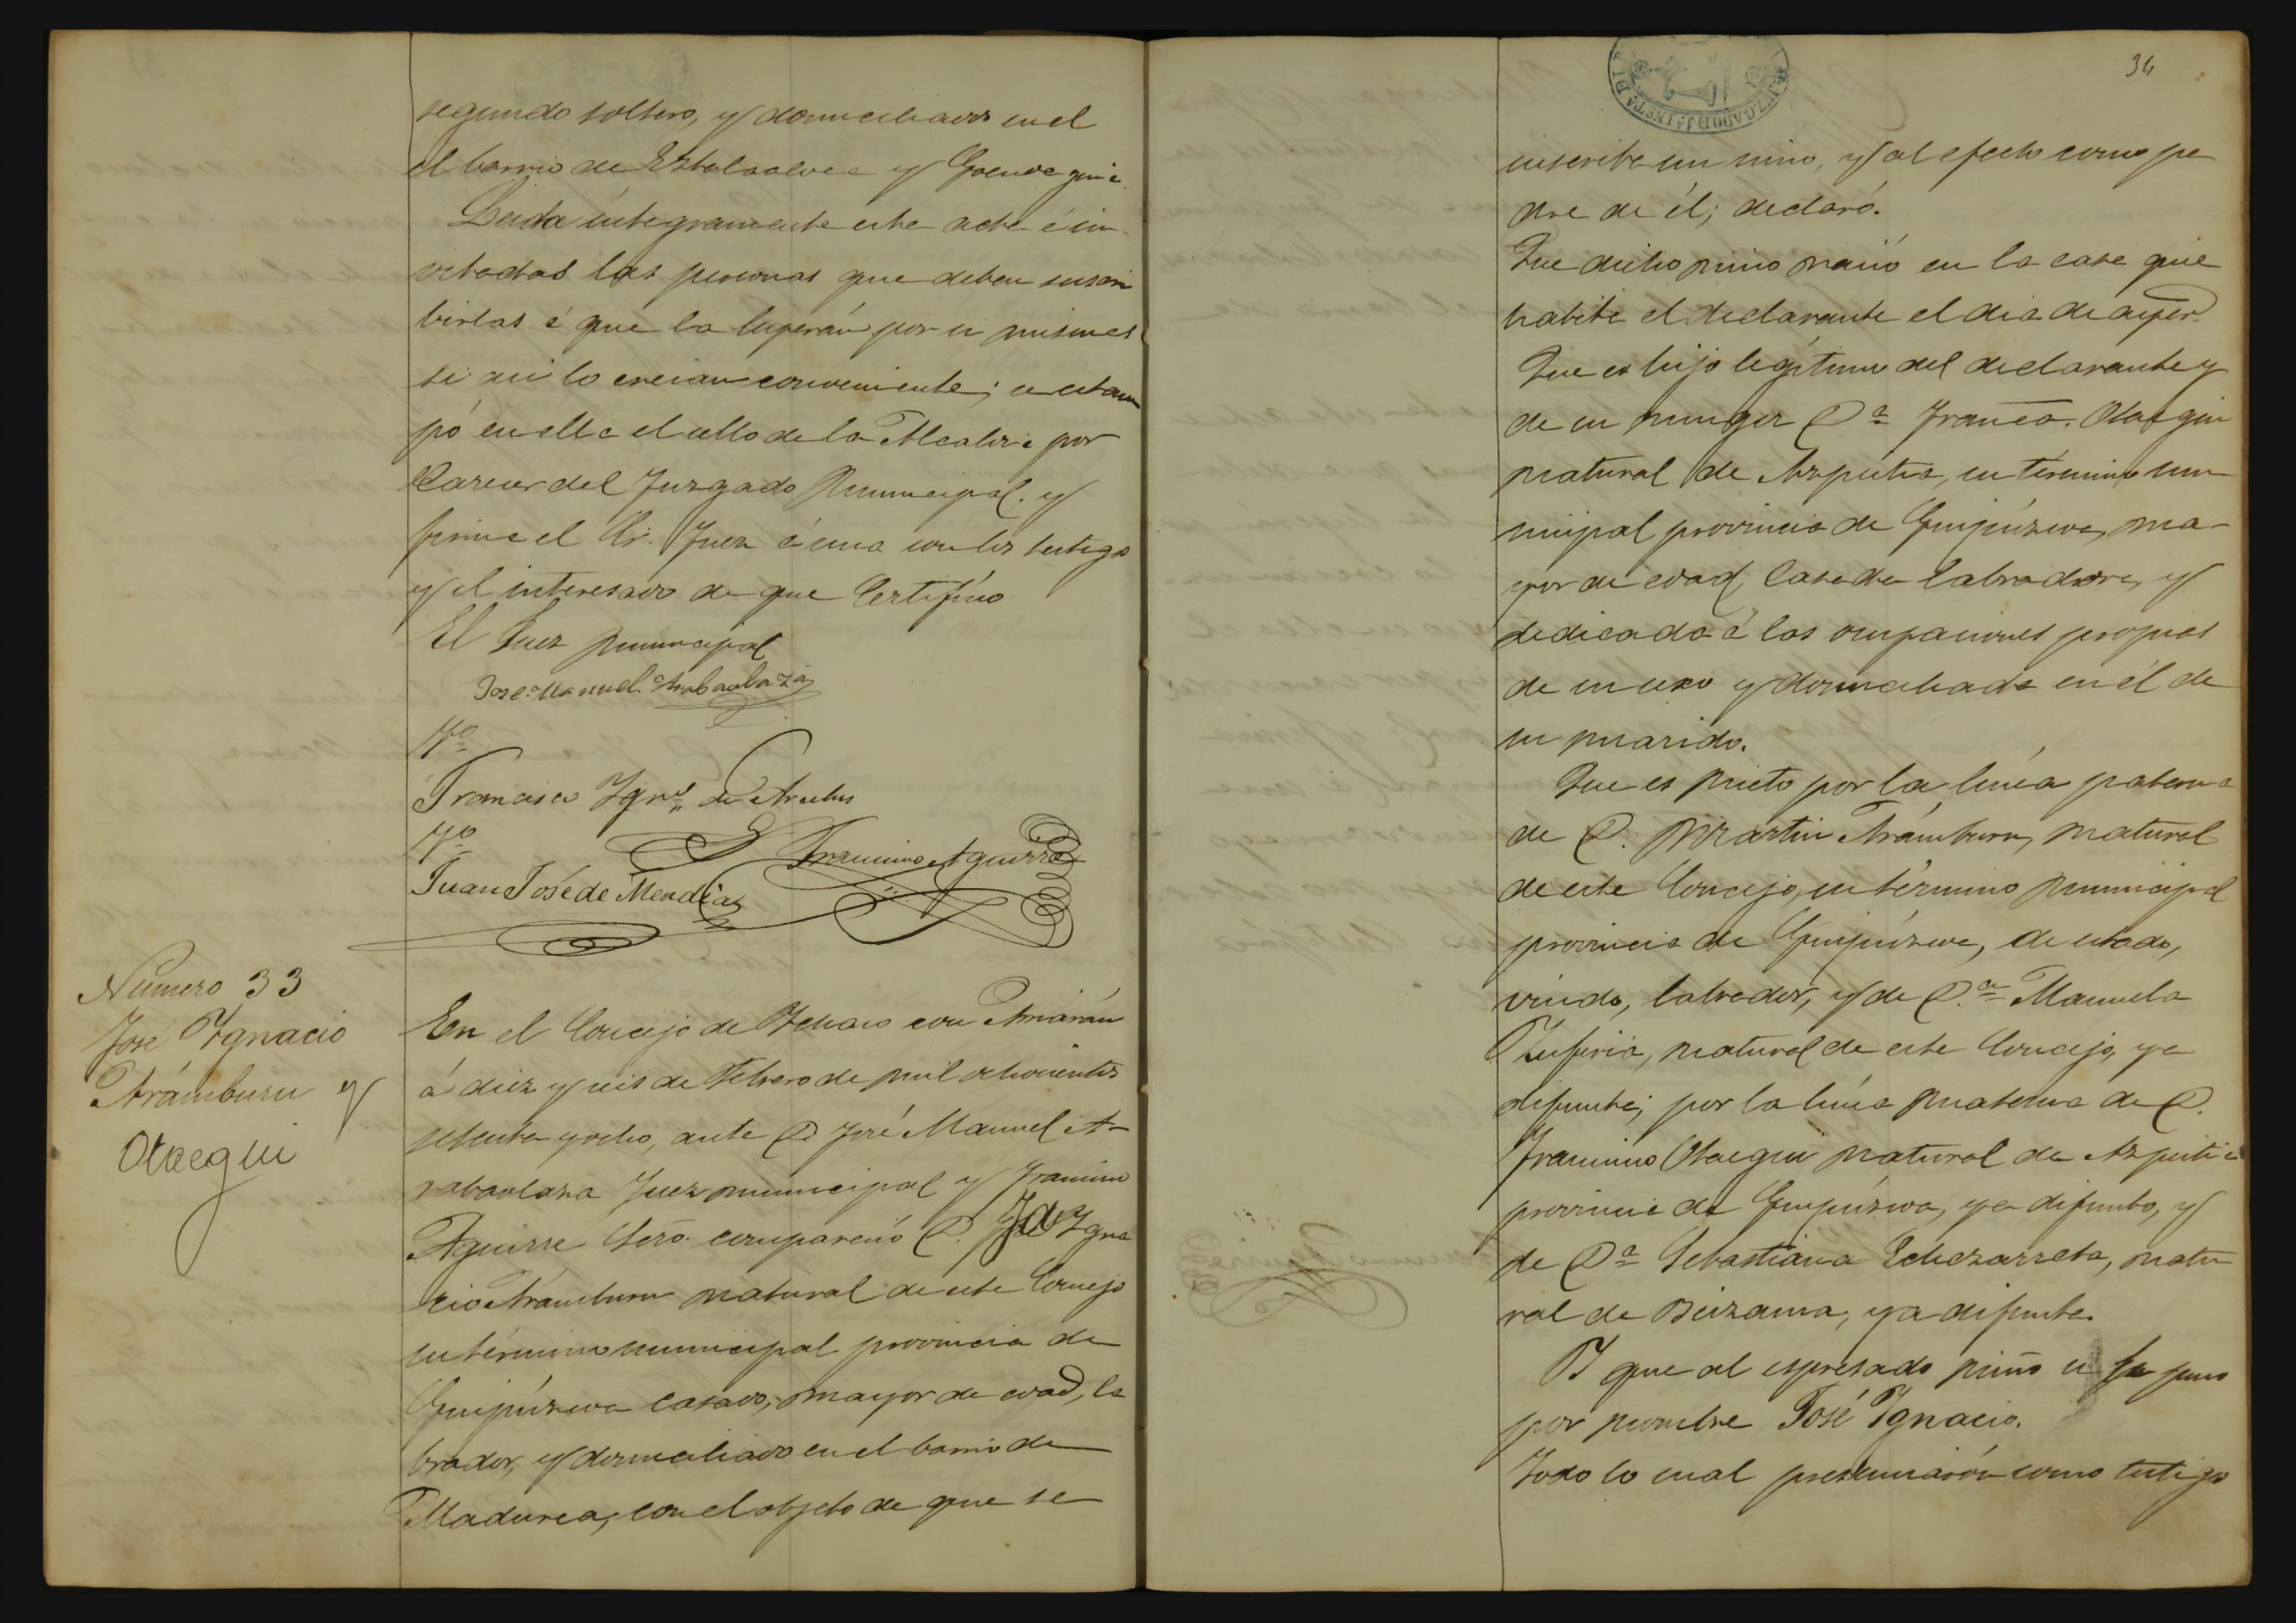 segundo soltero, y domiciliados en el
el barrio de
Leida íntegramente esta acta é in
vitadas las personas que deben suscri
birlas á que la leyerán por si mismas
si asi lo creian conveniente; se estam
pó en ella el sello de la Alcaldia por
Carecer del Juzgado Municipal. y
firma el Sr. Juez é una con los testigos
y el interesado de que Certifico
El Juez Municipal
Jose Manuel Arabaolaza
Tgo
Francisco Ygno de
Tgo
Francisco Aguirre
Juan José de Mendia
Numero 33
José Ygnacio
Arámburu y
Otaegui
En el Concejo de Ychaso con Arriarán
á diez y seis de Febrero de mil ochocientos
setenta y ocho, ante D. José Manuel A-
rabaolaza Juez municipal y Francisco
Aguirre Sesrº. compareció D. José Ygna
cio Arámburu natural de este Concejo
su término municipal provincia de
Guipúzcoa casado, mayor de edad, la
brador, y domiciliado en el barrio de
Madurea, con el objeto de que se
34
JUZGADO DE 1A INSTA DE
inscriba un niño, y al efecto como pa
dre de él; declaró.
Que dicho niño nació en la casa que
habita el declarante el dia de ayer
Que es hijo legítimo del declarante y
de su muger Da Franca. Otaegui
natural de Azpeitia, su término mu
nicipal provincia de Guipúzcoa, ma-
yor de edad, Casada labradora, y
dedicada á las ocupaciones propias
de su sexo y domiciliada en él de
su marido.
Que es nieto por la línea paterna
de D. Martin Arámburu, natural
de este Concejo, su término municipal
provincia de Guipúzcoa, de estado,
viudo, labrador, y de D.a Manuela
natural de este Concejo, ya
difunta; por la línea materna de D.
Francisco Otaegui natural de Azpeitia
provincia de Guipúzcoa, ya difunto, y
de Da Sebastiana Echezarreta, natu
ral de Beizama, ya difunta.
Y que al espresado niño se le puso
por nombre José Ygnacio.
Todo lo cual presenciarón como testigos